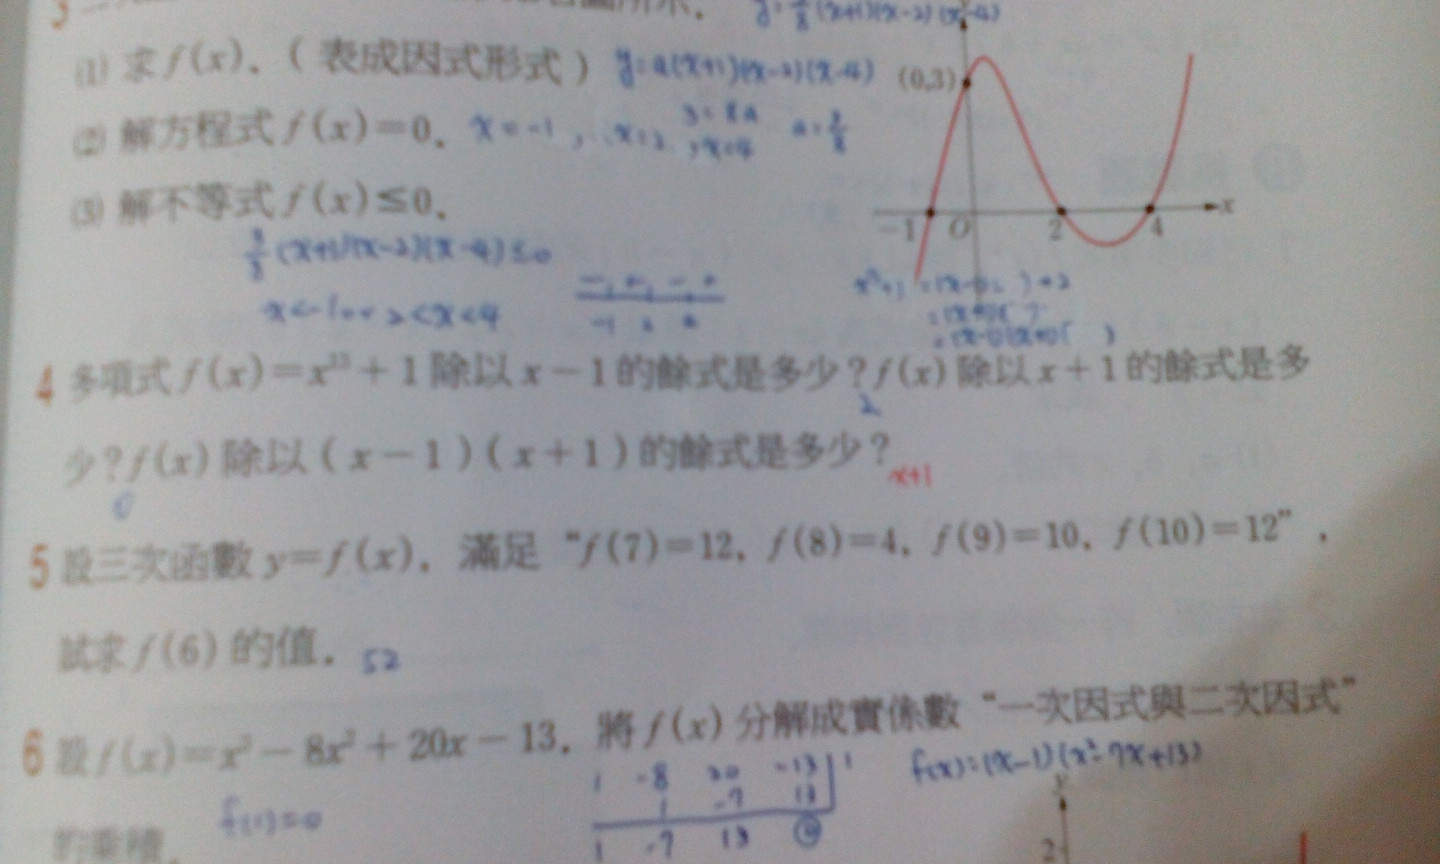 3
(1) 求f(x).(表成因式形式) y=a(x+1)(x-2)(x-4) (0,3)
(2) 解方程式f(x)=0. x=-1, x=2, x=4 3=8a a=3/8
(3) 解不等式f(x)≤0.
-1 O 2 4 x
3/8(x+1)(x-2)(x-4)≤0
x<-1 or 2<x<4
4 多項式f(x)=x +1除以x-1的餘式是多少?f(x)除以x+1的餘式是多
2
少?f(x)除以(x-1)(x+1)的餘式是多少? x+1
0
5 設三次函數y=f(x),滿足“f(7)=12, f(8)=4, f(9)=10, f(10)=12”,
試求f(6)的值. 52
6 設f(x)=x³-8x²+20x-13,將f(x)分解成實係數“一次因式與二次因式”
1 -8 20 -13 1 f(x)=(x-1)(x²-7x+13)
的乘積. f(1)=0 1 -7 13
1 -7 13 0
y
2